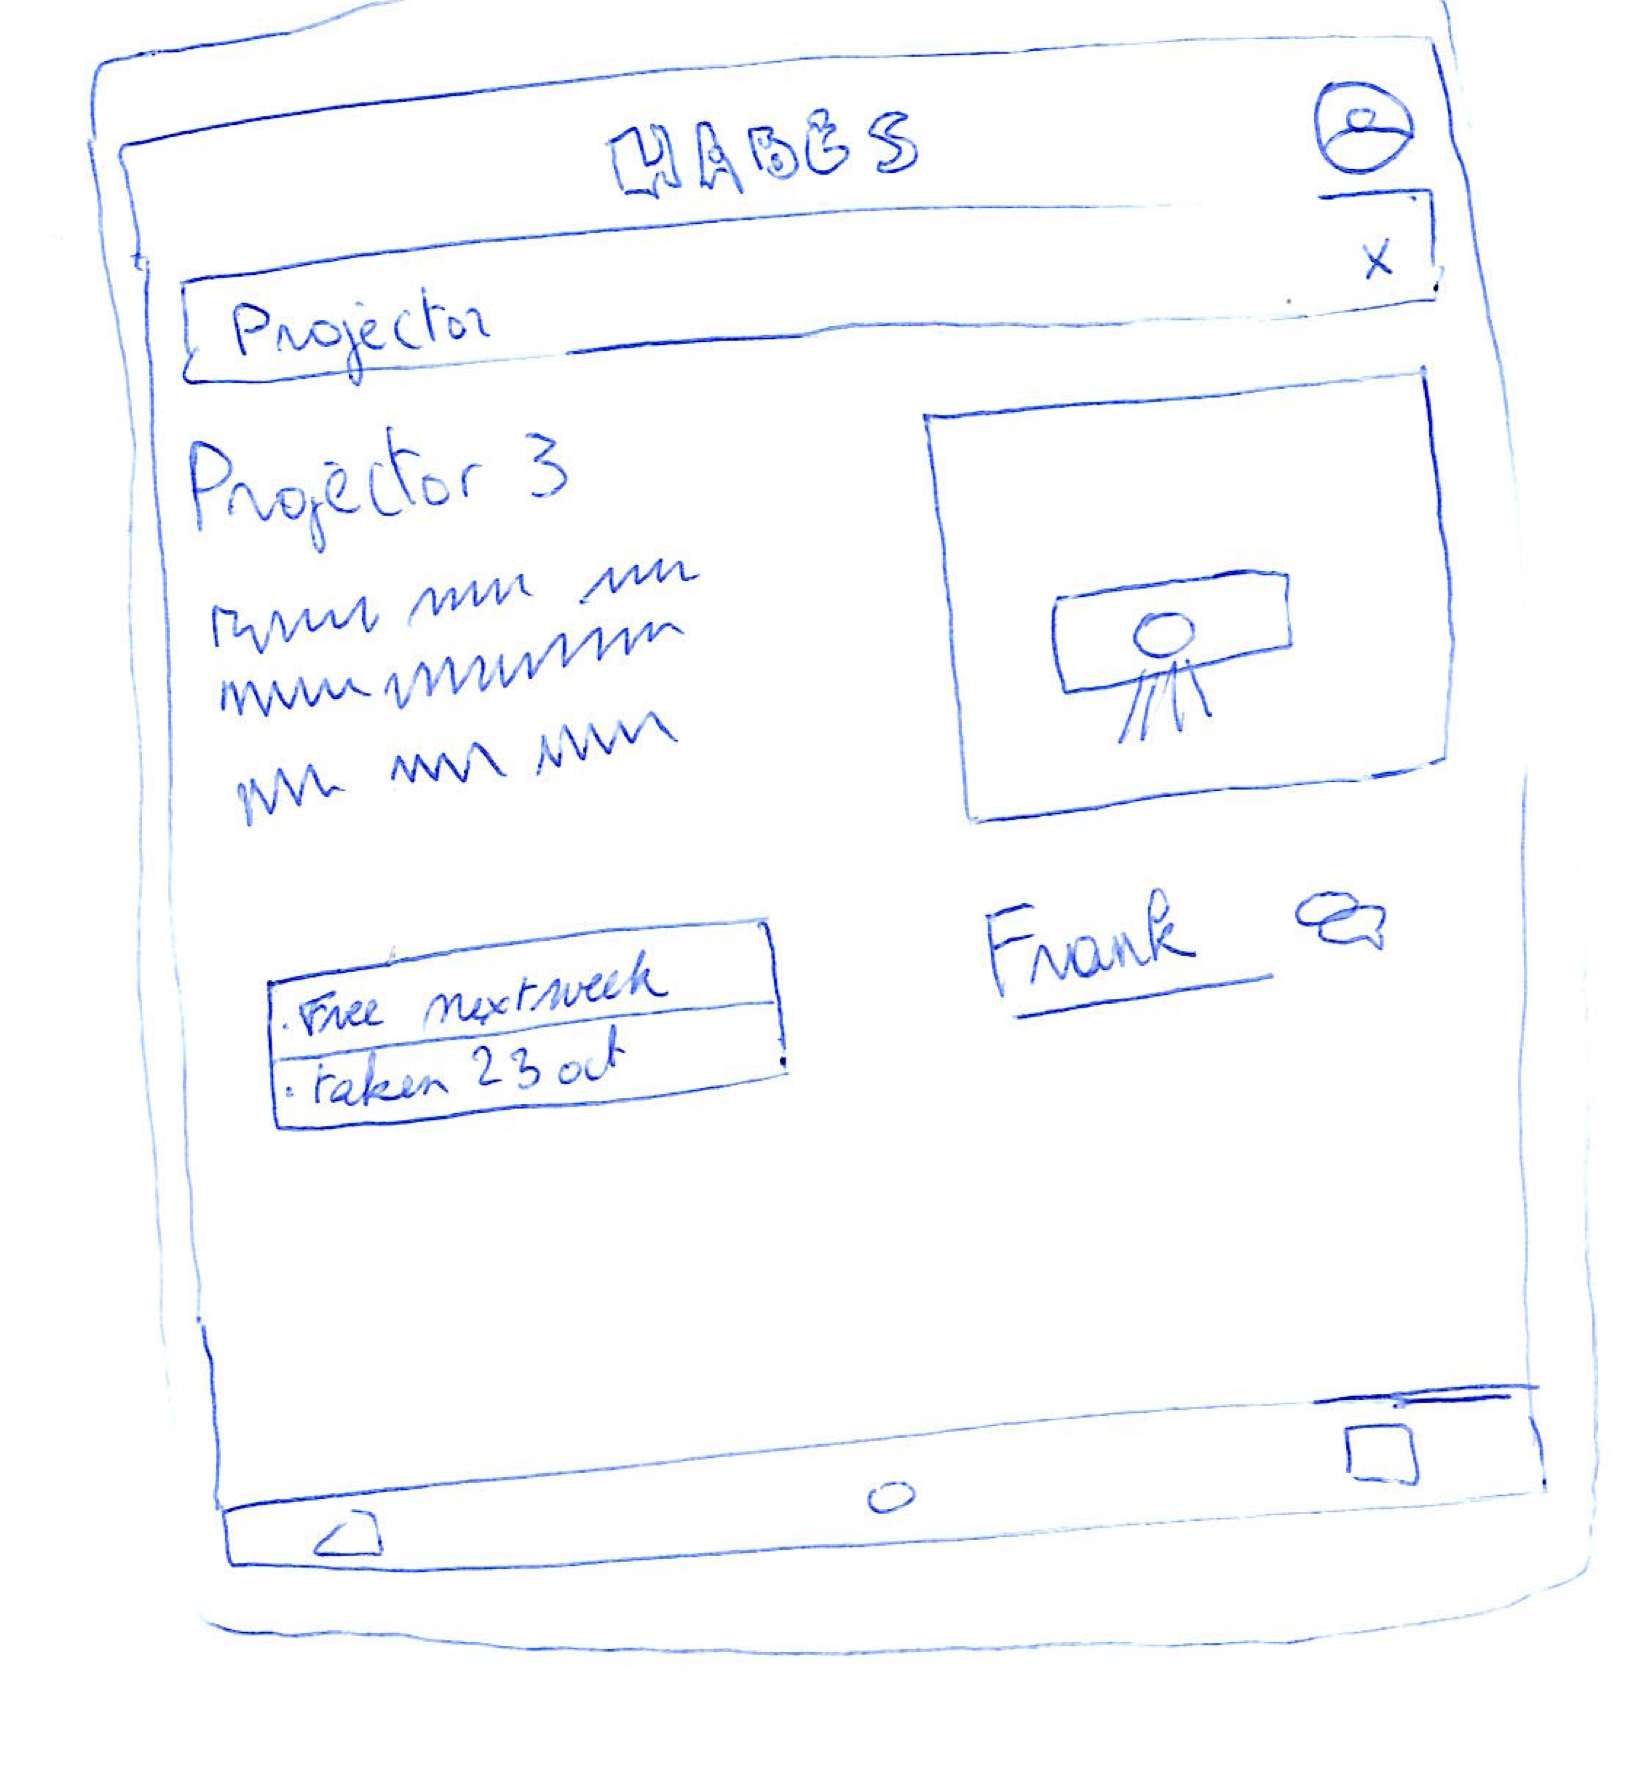 HABES
Projector
X
Projector 3
Frank
Free next week
taken 23 oct